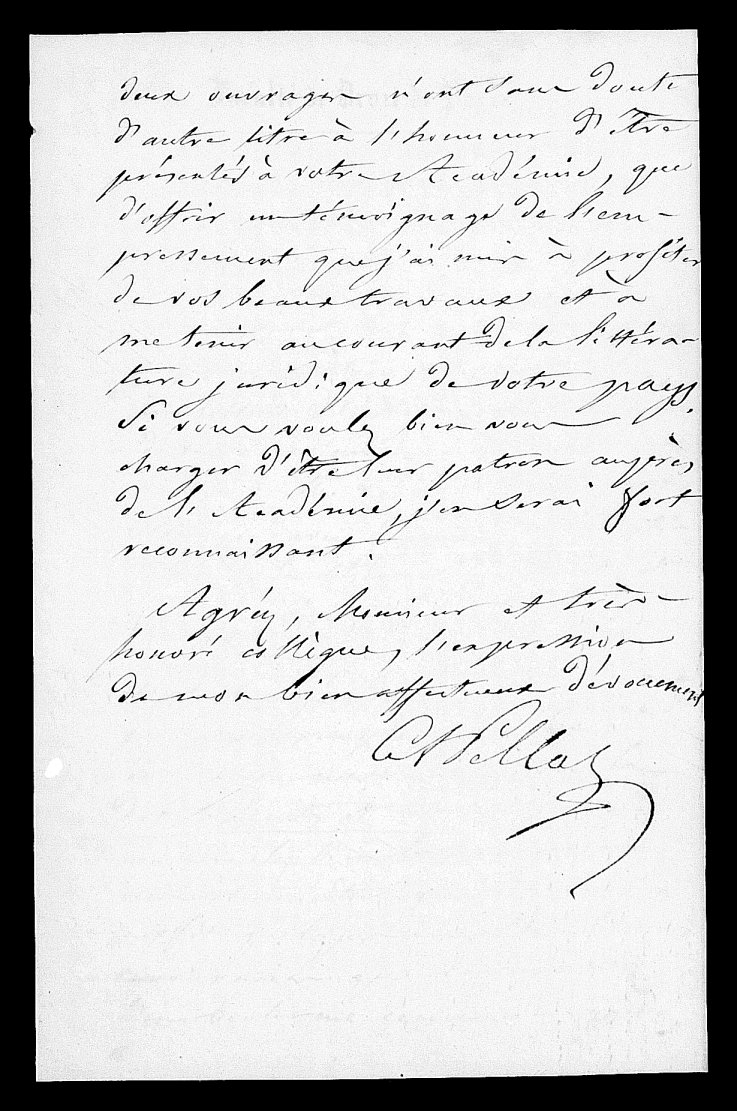 deux ouvrages n'ont sans doute
d'autre titre à l'honneur d'être
présentés à votre Académie, que
d'offrir un témoignage de l'em-
pressement que j'ai mis à profiter
de vos beaux travaux et à
me tenir au courant de la littéra-
ture juridique de votre pays.
Si vous voulez bien vous
charger d'être leur patron auprès
de l'Académie, j'en serai fort
reconnaissant.
Agréez, Monsieur et très
honoré collègue, l'expression
de mon bien affectueux dévouement